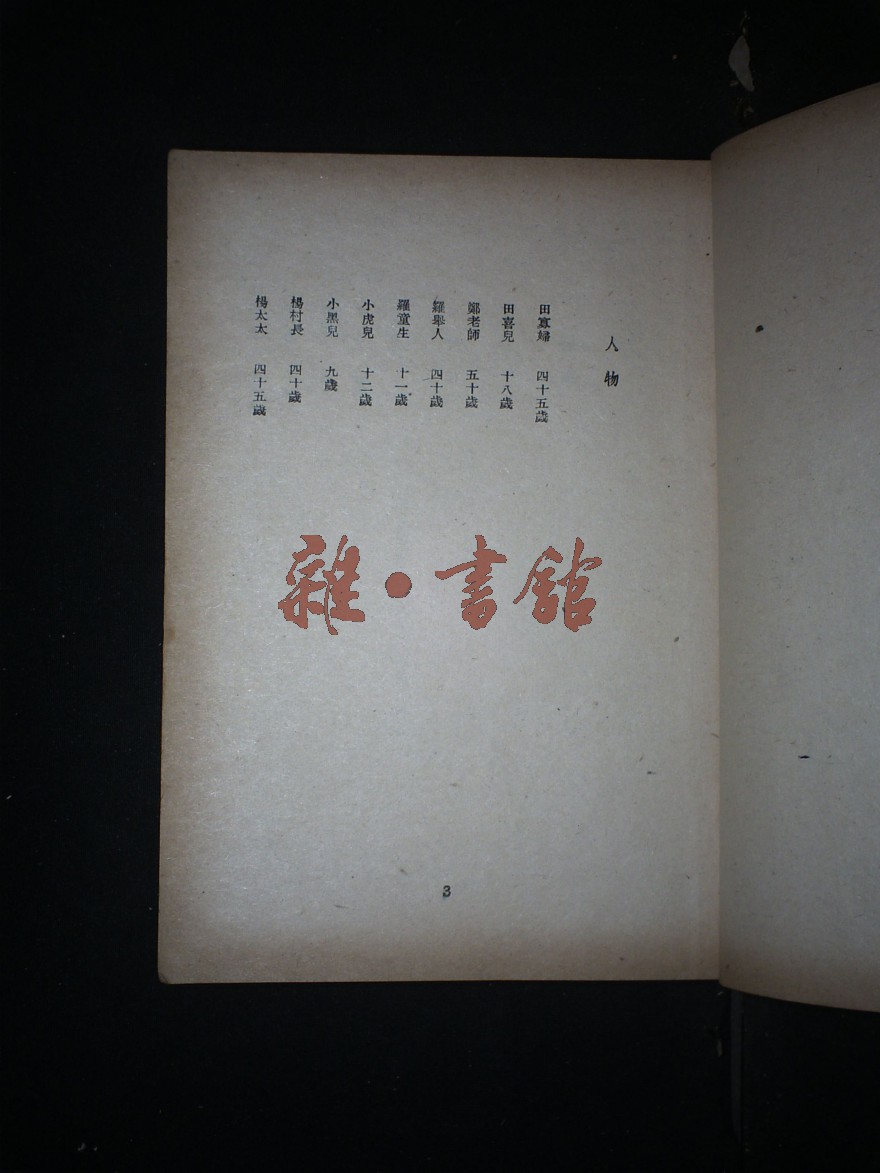 人物
田寡婦 四十五歲
田喜兒 十八歲
鄭老師 五十歲
羅舉人 四十歲
羅童生 十一歲
小虎兒 十二歲
小黑兒 九歲
楊村長 四十歲
楊太太 四十五歲
雜·書館
3